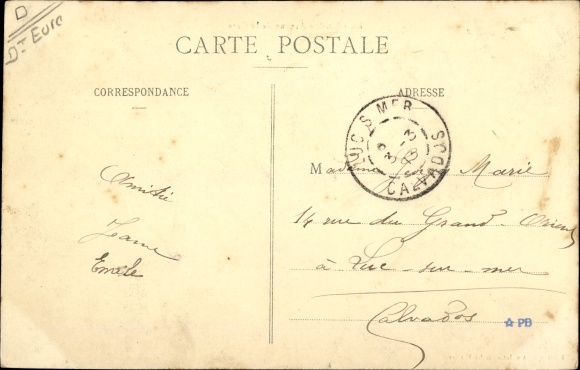 D
Dt Euro
CARTE POSTALE
CORRESPONDANCE
ADRESSE
LUC S. MER
3 - 3
CALVADOS
Amitié
Jeanne
Emile
Madame Marie
14 rue du Grand-Orient
à Luc-sur-mer
Calvados
PB